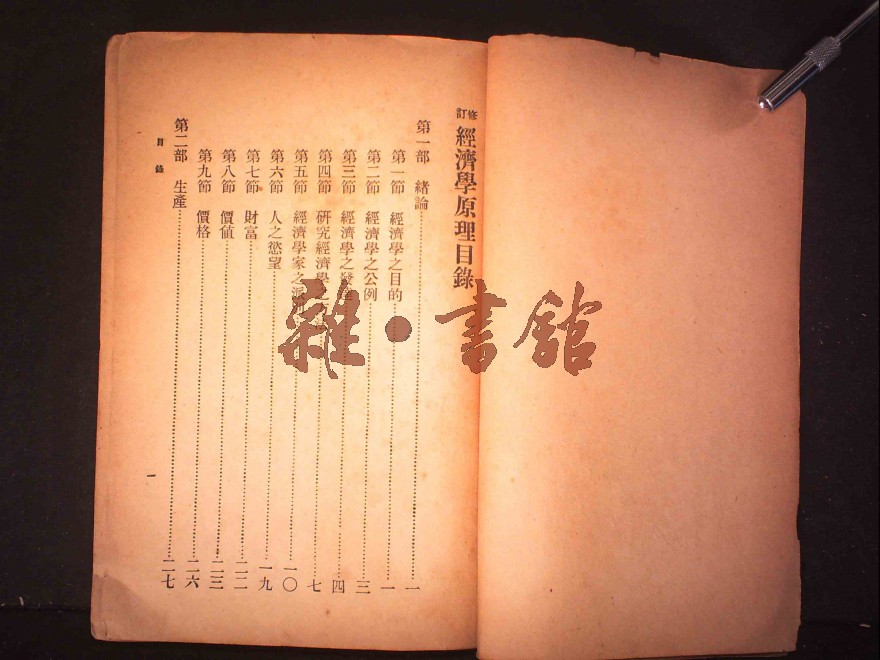 修訂 經濟學原理目錄
第一部 緒論 一
第一節 經濟學之目的 一
第二節 經濟學之公例 三
第三節 經濟學之發達 四
第四節 研究經濟學之 七
第五節 經濟學家之派別 一〇
第六節 人之慾望 一九
第七節 財富 二二
第八節 價值 二三
第九節 價格 二六
第二部 生產 二七
目錄
一
雜·書館